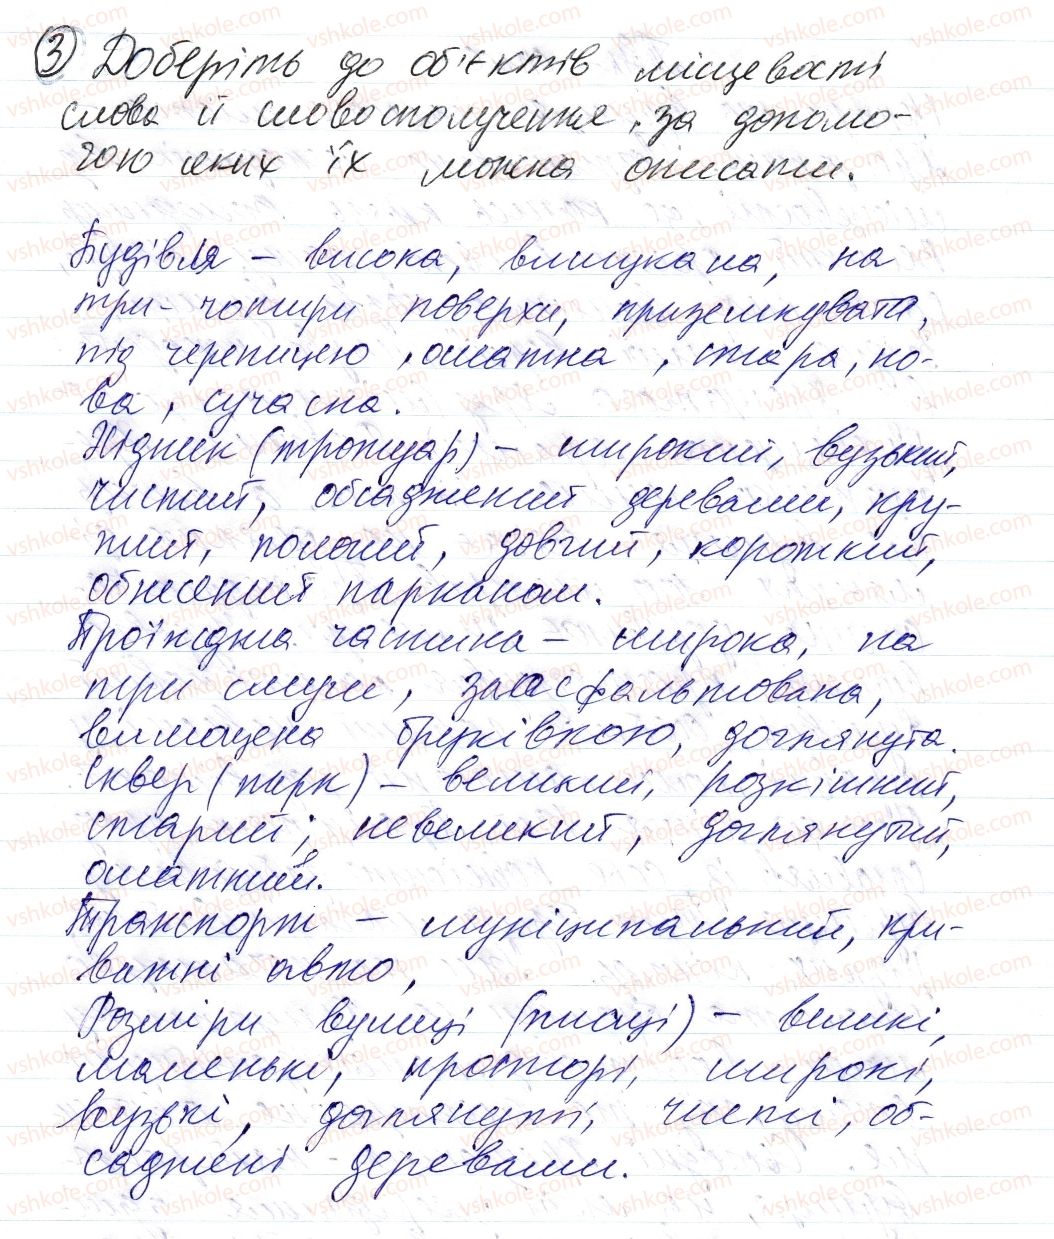 3 Доберіть до об'єктів місцевості
слова й словосполучення, за допомо-
гою яких їх можна описати.
Будівля – висока, вишукана, на
три-чотири поверхи, приземкувата,
під черепицею, ошатна, стара, но-
ва, сучасна.
Хідник (тротуар) – широкий, вузький,
чистий, обсаджений деревами, кру-
тий, пологий, довгий, короткий,
обнесений парканом.
Проїжджа частина – широка, на
три смуги, заасфальтована,
вимощена бруківкою, доглянута.
Сквер (парк) – великий, розкішний,
старий; невеликий, доглянутий,
ошатний.
Транспорт – муніципальний, при-
ватні авто,
Розміри вулиці (площі) – великі,
маленькі, просторі, широкі,
вузькі, доглянуті, чисті, об-
саджені деревами.